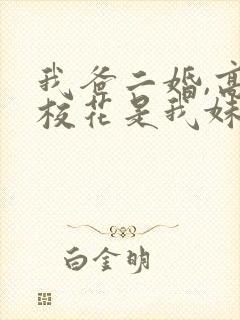 我爸二婚,高
校花是我妹
白金明